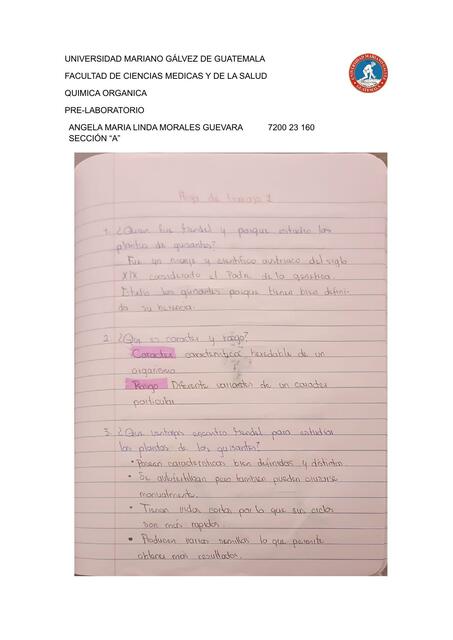 UNIVERSIDAD MARIANO GÁLVEZ DE GUATEMALA
FACULTAD DE CIENCIAS MEDICAS Y DE LA SALUD
QUIMICA ORGANICA
PRE-LABORATORIO
ANGELA MARIA LINDA MORALES GUEVARA 7200 23 160
SECCIÓN “A”
Hoja de trabajo 1
1. ¿Quien fue Mendel y porque estudio las
plantas de guisantes?
Fue un monje y cientifico austriaco del siglo
XIX considerado el Padre de la genética.
Estudio los guisantes porque tienen bien defini-
da su herencia.
2. ¿Que es caracter y rasgo?
Caracter caracteristica heredable de un
organismo
Rasgo Diferente variantes de un caracter
particular
3. ¿Que ventajas encontro Mendel para estudiar
las plantas de los guisantes?
• Poseen caracteristicas bien definidas y distintas.
• Se autofertilizan pero tambien pueden cruzarse
manualmente.
• Tienen vidas cortas por lo que sus ciclos
son más rapidos.
• Producen varias semillas lo que permite
obtener mas resultados.